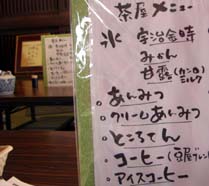 茶屋メニュー
氷 宇治金時
みかん
甘露(カンロ)
ミルク
○あんみつ
○クリームあんみつ
○ところてん
○コーヒー(豆屋ブレン
○アイスコーヒー